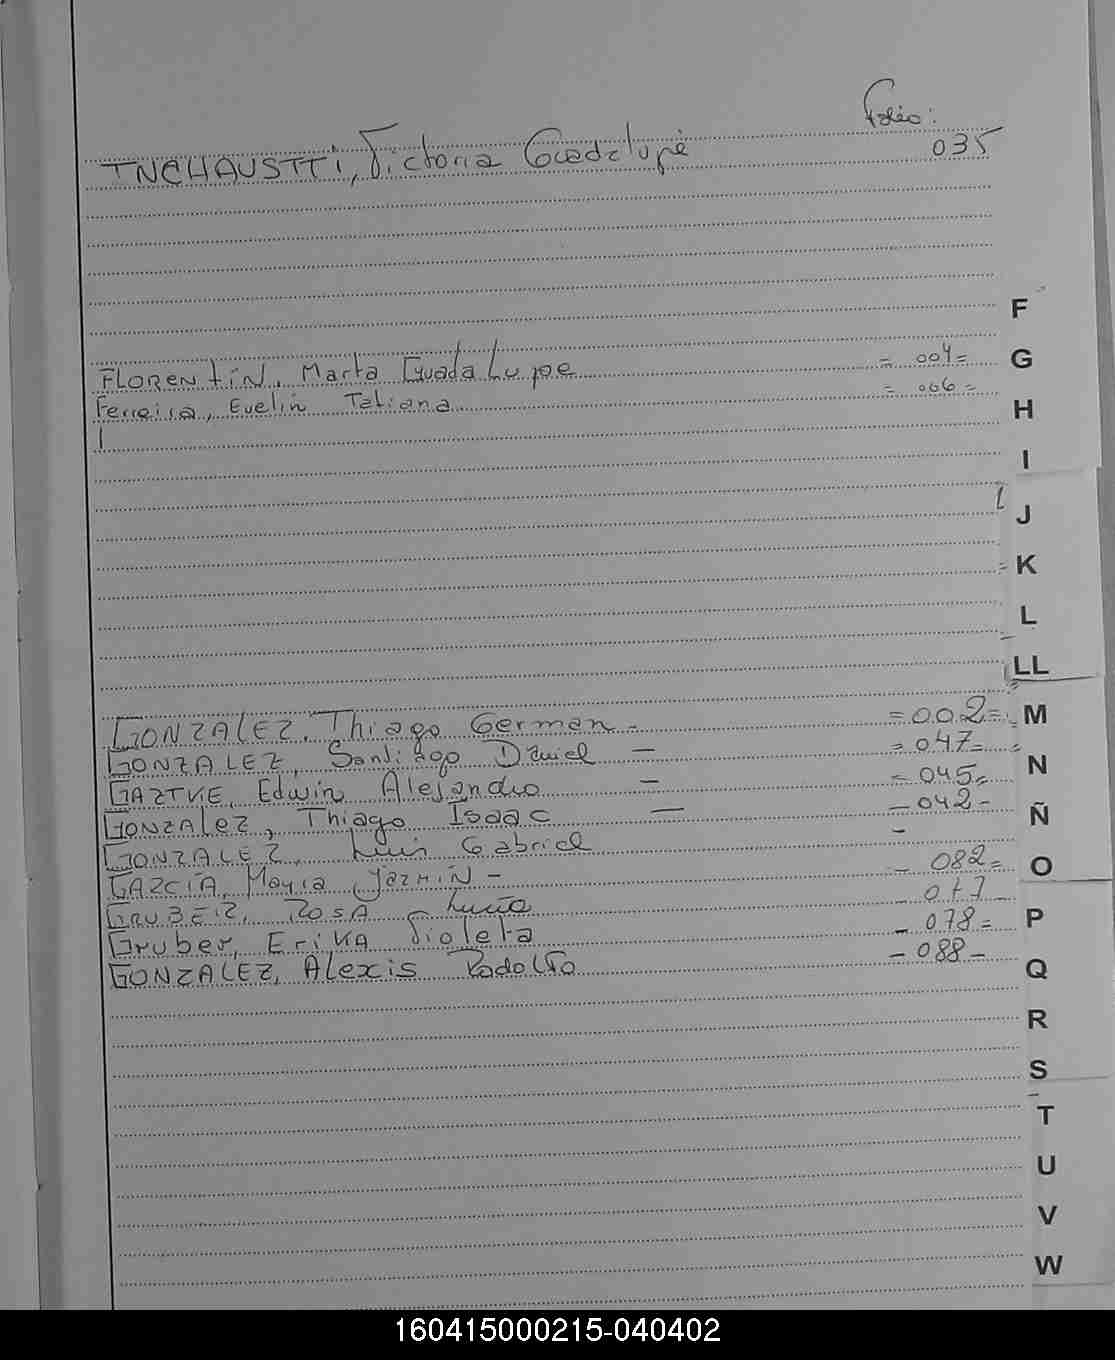 Folio:
INCHAUSTTI, Victoria Guadalupe 035
F
FLORENTIN, Marta Guadalupe = 004=
G
Ferreira, Evelin Tatiana = 006=
H
I
J
K
L
LL
GONZALEZ, Thiago German - =002=
M
GONZALEZ, Santiago Daniel - =047=
N
Edwin Alejandro - =045=
GONZALEZ, Thiago Isaac - -042-
Ñ
GONZALEZ, Luis Gabriel -
GARCIA, Mayra Jazmin - - 082=
O
GRUBER, ROSA Lucia -
Gruber, ERIKA Violeta - 078=
P
GONZALEZ, Alexis Rodolfo -088-
Q
R
S
T
U
V
W
160415000215-040402